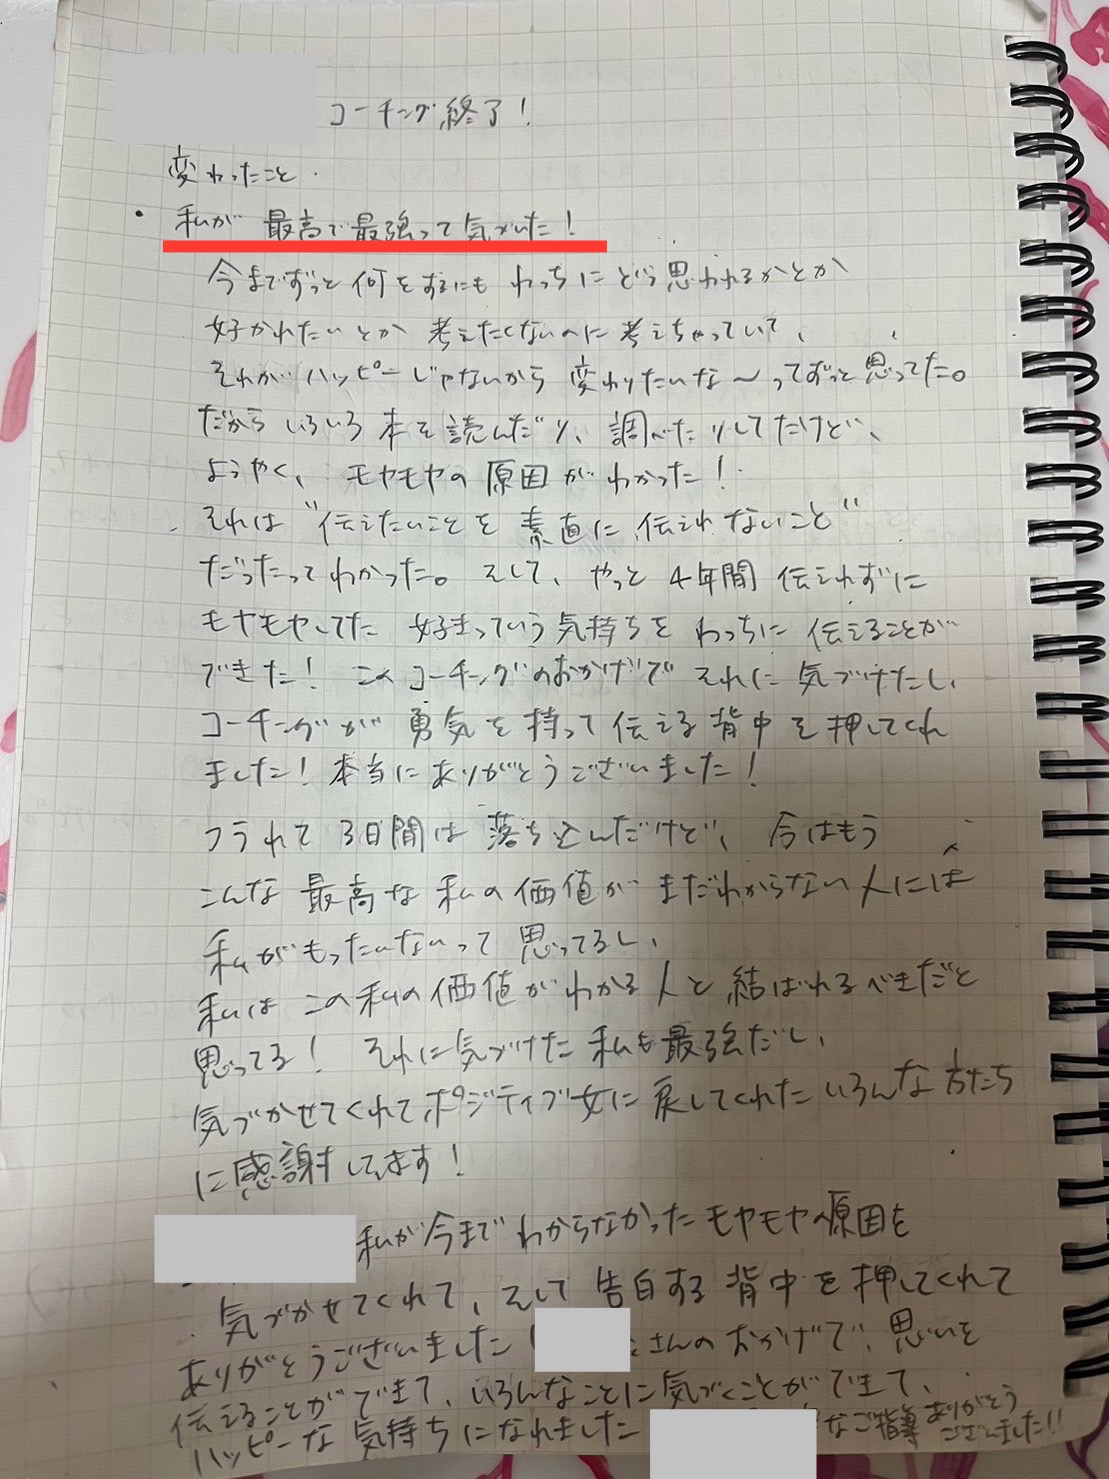 コーチング終了!
変わったこと.
・私が 最高で最強って気づいた!
今までずっと何をするにも わっちにどう思われるかとか
好かれたいとか 考えたくないのに考えちゃっていて、
それが ハッピーじゃないから 変わりたいな〜ってずっと思ってた。
だから いろいろ 本を読んだり、調べたりしてたけど、
ようやく、モヤモヤの原因がわかった!
それは "伝えたいことを 素直に 伝えれないこと"
だったってわかった。そして、やっと 4年間 伝えれずに
モヤモヤしてた 好きっていう気持ちを わっちに 伝えることが
できた! このコーチングのおかげで それに気づけたし、
コーチングが 勇気を持って伝える背中を押してくれ
ました!本当にありがとうございました!
フラれて 3日間は 落ち込んだけど、今はもう
こんな 最高な私の価値が まだわからない人には
私がもったいないって 思ってるし、
私は この私の価値がわかる人と 結ばれるべきだと
思ってる! それに気づけた 私も最強だし、
気づかせてくれてポジティブ女に戻してくれた いろんな方たち
に感謝してます!
私が今まで わからなかったモヤモヤの原因を
気づかせてくれて、そして 告白する背中を押してくれて
ありがとうございました!
さんのおかげで、思いを
伝えることができて、いろんなことに気づくことができて、
ハッピーな気持ちになれました
なご指導 ありがとう
ございました!!